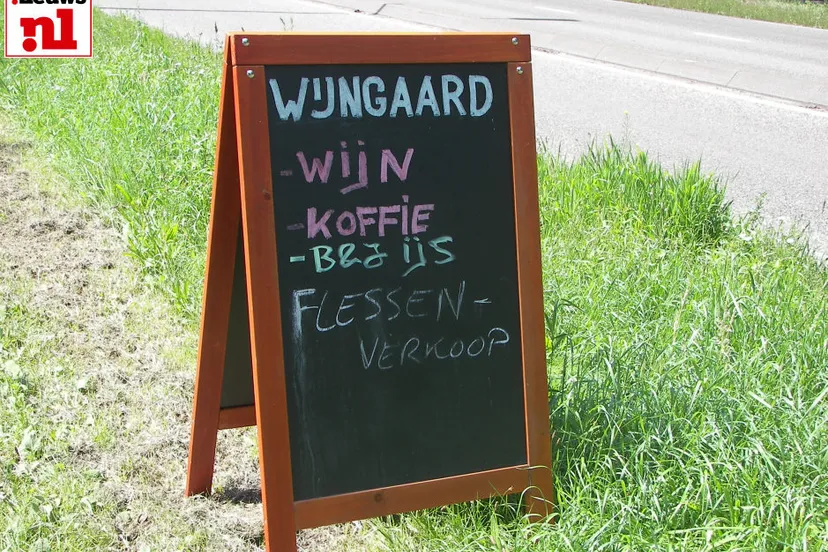 nieuws
.nl
WIJNGAARD
-WIJN
-KOFFIE
-B&J IJS
FLESSEN-
VERKOOP